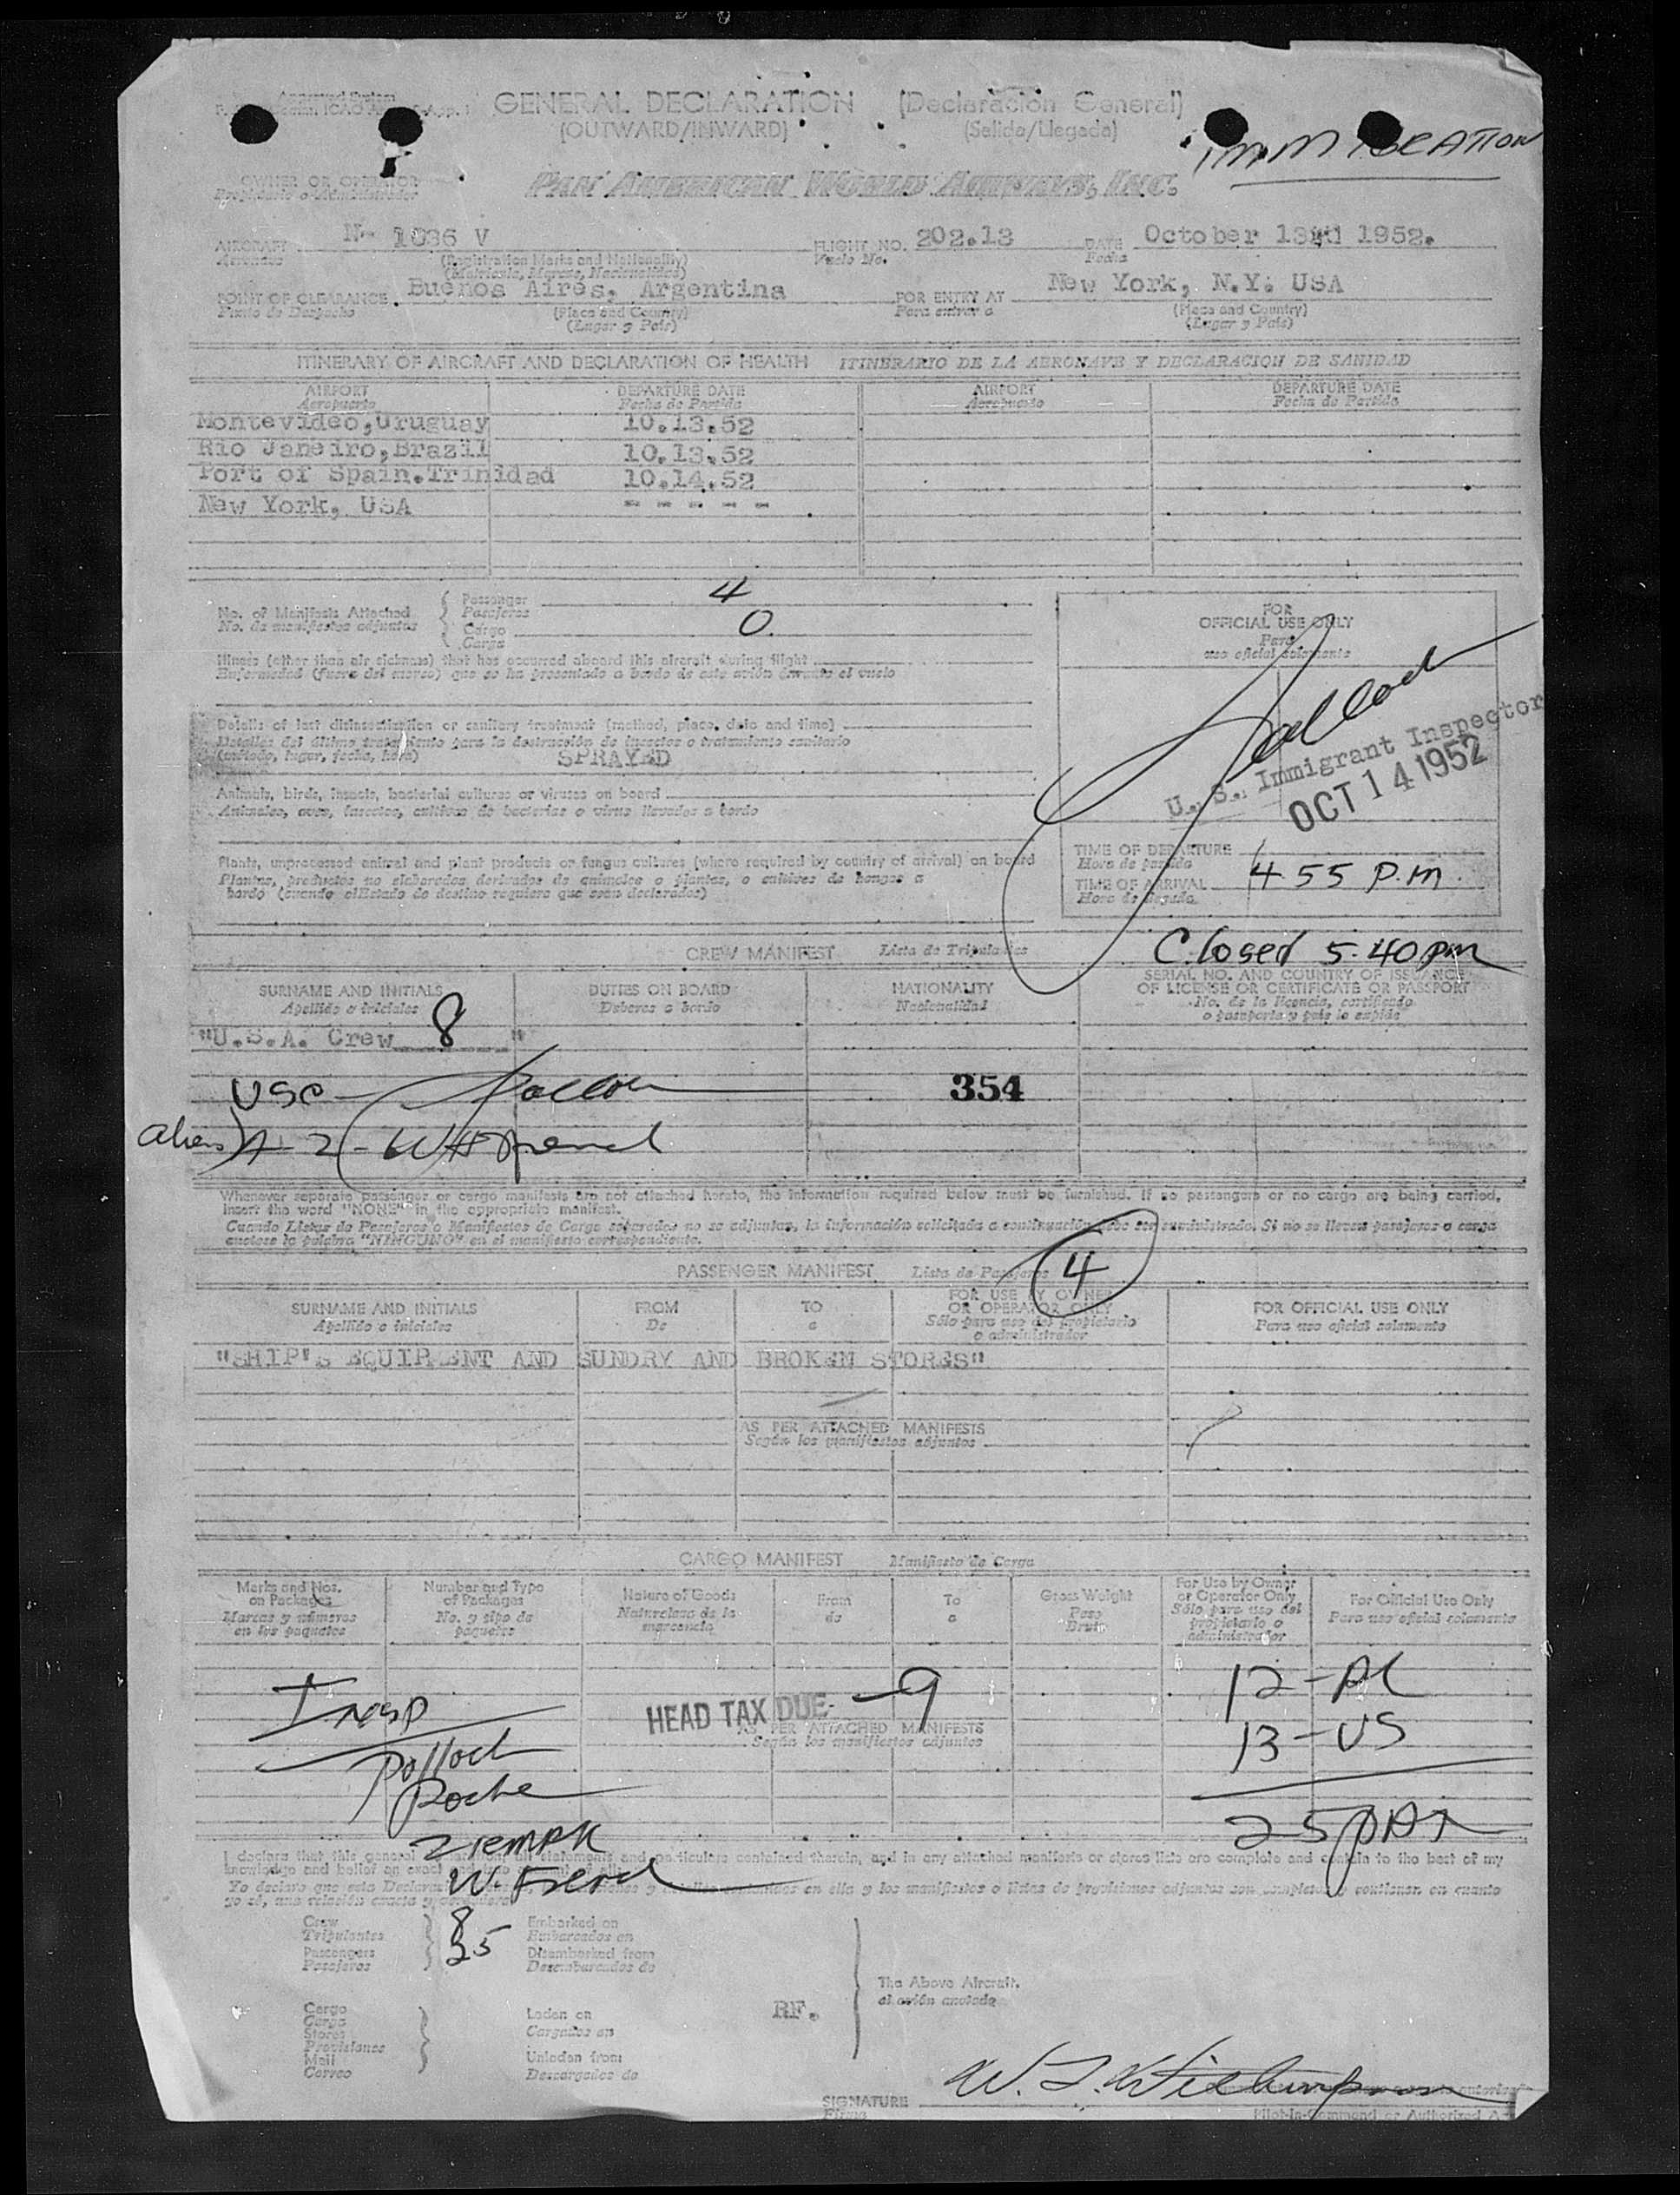 GENERAL DECLARATION (Declaración General)
(OUTWARD/INWARD) (Salida/Llegada)
IMMIGRATION
OWNER OR OPERATOR
Propietario o Administrador
PAN AMERICAN WORLD AIRWAYS, INC.
AIRCRAFT N- 1036 V FLIGHT NO. 202.13 DATE October 13 1952.
Aeronave Vuelo No. Fecha
(Registration Marks and Nationality)
(Matricula, Marcas, Nacionalidad)
POINT OF CLEARANCE Buenos Aires, Argentina FOR ENTRY AT New York, N.Y. USA
Punto de Despacho (Place and Country) Para entrar a (Place and Country)
(Lugar y País) (Lugar y País)
ITINERARY OF AIRCRAFT AND DECLARATION OF HEALTH ITINERARIO DE LA AERONAVE Y DECLARACION DE SANIDAD
AIRPORT DEPARTURE DATE AIRPORT DEPARTURE DATE
Aeropuerto Fecha de Partida Aeropuerto Fecha de Partida
Montevideo,Uruguay 10.13.52
Rio Janeiro,Brazil 10.13.52
Port of Spain.Trinidad 10.14.52
New York, USA - - - - -
No. of Manifests Attached { Passenger 4
No. de manifiestos adjuntos Pasajeros
Cargo 0
Carga
FOR
OFFICIAL USE ONLY
Para
uso oficial solamente
Illness (other than air sickness) that has occurred aboard this aircraft during flight
Enfermedad (fuera del mareo) que se ha presentado a bordo de este avión durante el vuelo
Details of last disinsectization or sanitary treatment (method, place, date and time)
Detalles del último tratamiento para la destrucción de insectos o tratamiento sanitario
(método, lugar, fecha, hora) SPRAYED
Pollock
U. S. Immigrant Inspector
OCT 14 1952
Animals, birds, insects, bacterial cultures or viruses on board
Animales, aves, insectos, cultivos de bacterias o virus llevados a bordo
Plants, unprocessed animal and plant products or fungus cultures (where required by country of arrival) on board
Plantas, productos no elaborados derivados de animales o plantas, o cultivos de hongos a
bordo (cuando el Estado de destino requiera que sean declarados)
TIME OF DEPARTURE
Hora de partida
TIME OF ARRIVAL 4 55 P.M.
Hora de llegada
Closed 5.40 pm
CREW MANIFEST Lista de Tripulantes
SURNAME AND INITIALS DUTIES ON BOARD NATIONALITY SERIAL NO. AND COUNTRY OF ISSUANCE
OF LICENSE OR CERTIFICATE OR PASSPORT
Apellido e iniciales Deberes a bordo Nacionalidad No. de la licencia, certificado
o pasaporte y país lo expide
"U.S.A. Crew 8 "
USC - Pollock 354
aliens A-2 - WH French
Whenever separate passenger or cargo manifests are not attached hereto, the information required below must be furnished. If no passengers or no cargo are being carried,
insert the word "NONE" in the appropriate manifest.
Cuando Listas de Pasajeros o Manifiestos de Carga separados no se adjuntan, la información solicitada a continuación debe ser suministrada. Si no se llevan pasajeros o carga
anótese la palabra "NINGUNO" en el manifiesto correspondiente.
PASSENGER MANIFEST Lista de Pasajeros 4
SURNAME AND INITIALS FROM TO FOR USE BY OWNER
OR OPERATOR ONLY FOR OFFICIAL USE ONLY
Apellido e iniciales De a Sólo para uso del propietario
o administrador Para uso oficial solamente
"SHIP'S EQUIPMENT AND SUNDRY AND BROKEN STORES"
AS PER ATTACHED MANIFESTS
Según los manifiestos adjuntos
CARGO MANIFEST Manifiesto de Carga
Marks and Nos.
on Packages
Marcas y números
en los paquetes
Number and Type
of Packages
No. y tipo de
paquetes
Nature of Goods
Naturaleza de la
mercancía
From
de
To
a
Gross Weight
Peso
Bruto
For Use by Owner
or Operator Only
Sólo para uso del
propietario o
administrador
For Official Use Only
Para uso oficial solamente
Insp 12-AL
HEAD TAX DUE - 9
AS PER ATTACHED MANIFESTS 13-US
Según los manifiestos adjuntos
Pollock
Roche
25
Ziemak
I declare that this general statements and particulars contained therein, and in any attached manifests or stores lists are complete and to the best of my
knowledge and belief an exact and
W. French
Crew } 8 Embarked on
Tripulantes Embarcados en
Passengers 25 Disembarked from
Pasajeros Desembarcados de
The Above Aircraft.
al avión anotado
Cargo
Carga
Stores
Provisiones
Mail
Correo
Laden on
Cargados en
Unladen from
Descargados de
RF.
SIGNATURE
Firma
Pilot-in-Command or Authorized